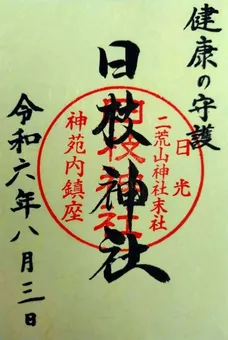 健康の守護
日光
二荒山神社末社
日枝神社
神苑内鎮座
令和六年八月三日